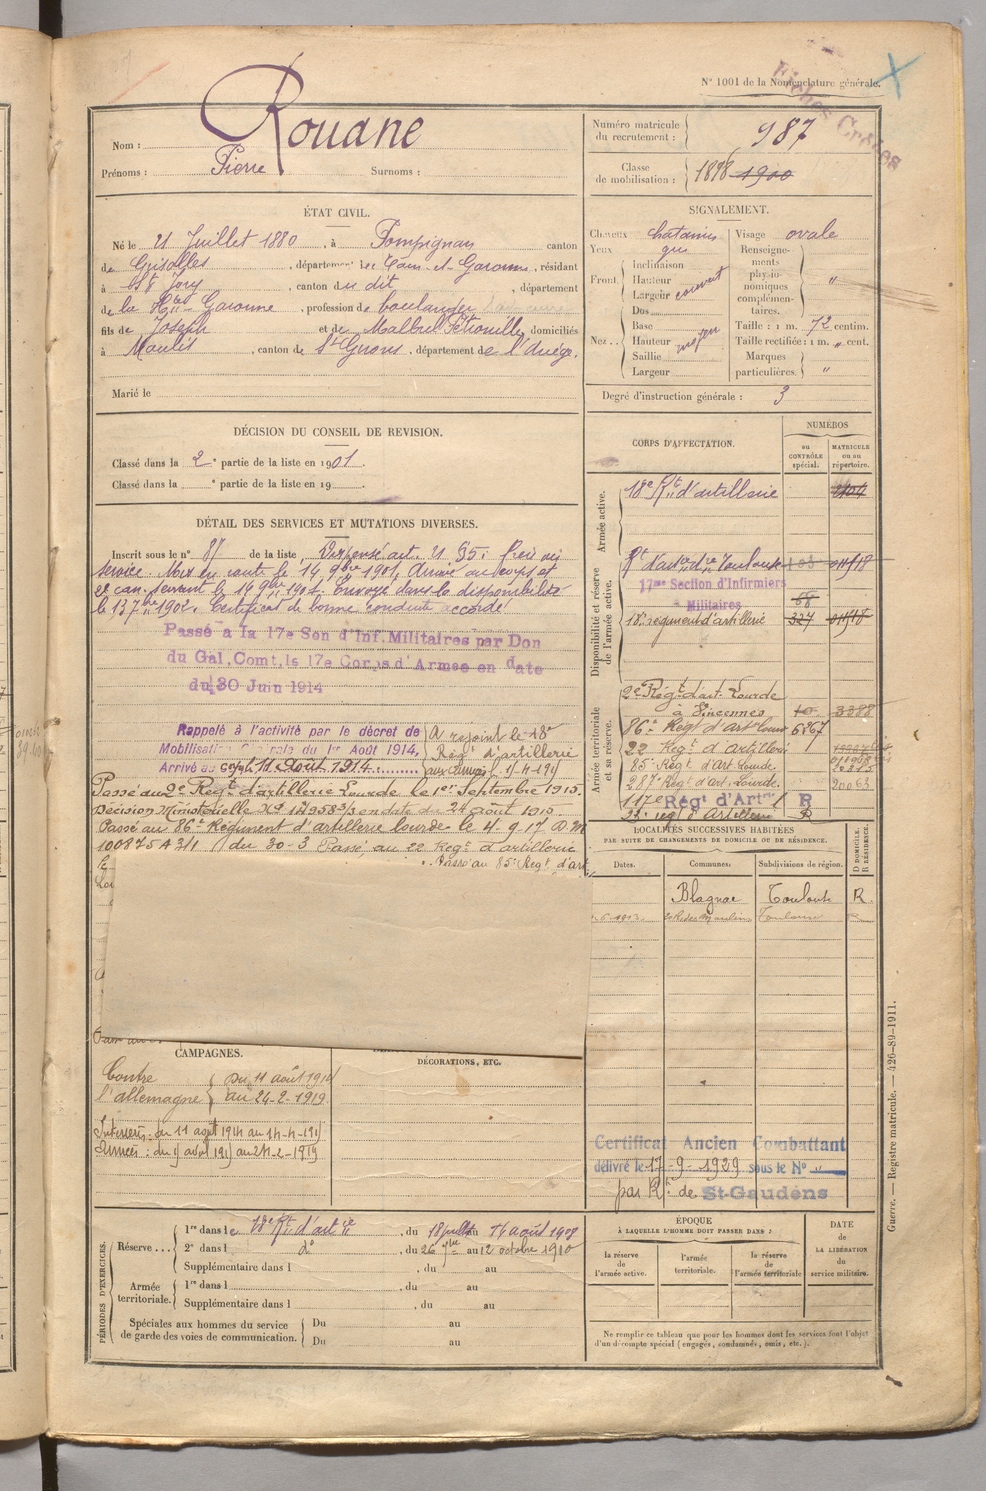 N° 1001 de la Nomenclature générale.
Fiches Créées
Nom : Rouane
Prénoms : Pierre Surnoms :
Numéro matricule du recrutement : 987
Classe de mobilisation : 1898 1900
ÉTAT CIVIL.
Né le 21 Juillet 1880, à Pompignan canton
de Grisolles, département de Tarn-et-Garonne, résidant
à St Jory, canton du dit, département
de la Hte Garonne, profession de boulanger
fils de Joseph et de Malbreil Pétronille, domiciliés
à Moulis, canton de St Girons, département de l'Ariège.
Marié le
SIGNALEMENT.
Cheveux châtains Visage ovale
Yeux gris
Front Inclinaison
Hauteur
Largeur couvert
Nez Dos
Base
Hauteur moyen
Saillie
Largeur
Renseignements physionomiques complémentaires. "
Taille : 1 m. 72 centim.
Taille rectifiée : 1 m. " cent.
Marques particulières. "
Degré d'instruction générale : 3
DÉCISION DU CONSEIL DE REVISION.
Classé dans la 2e partie de la liste en 1901.
Classé dans la e partie de la liste en 19
DÉTAIL DES SERVICES ET MUTATIONS DIVERSES.
Inscrit sous le n° 87 de la liste Dispensé art. 21 §5. frère au
service. Mis en route le 14 9bre 1901. Arrivé au corps et
2e can. servant le 14 9bre 1901. Envoyé dans la disponibilité
le 13 7bre 1902. Certificat de bonne conduite accordé
Passé à la 17e Son d'Inf. Militaires par Don
du Gal. Comt. le 17e Corps d'Armée en date
du 30 Juin 1914
Rappelé à l'activité par le décret de
Mobilisation Générale du 1er Août 1914,
Arrivé au corps le 11 Août 1914.
A rejoint le 18e
Régt d'artillerie
aux armées le
Passé au 2e Régt d'artillerie Lourde le 1er Septembre 1915.
Décision Ministérielle No 12958 3/3 en date du 24 août 1915
Passé au 86e Régiment d'artillerie lourde le 4-9-17 D.M.
10087 du 30-3 Passé au 22 Régt d'artillerie
Passé au 85e Régt d'art
CORPS D'AFFECTATION.
NUMÉROS
au CONTRÔLE spécial.
MATRICULE ou au répertoire.
Armée active.
18e Rt d'artillerie
Disponibilité et réserve de l'armée active.
Rt d'artie de Toulouse
17me Section d'Infirmiers
Militaires 68
18e régiment d'artillerie 327
Armée territoriale et sa réserve.
2e Régt d'art. Lourde
à Vincennes 10 3388
86e Régt d'Art Lourde 6267
22 Régt d'Artillerie
85e Régt d'Art. Lourde.
287 Régt d'Art. Lourde. 20063
117e Régt d'Art R
23e régt d'Artillerie R
LOCALITÉS SUCCESSIVES HABITÉES
PAR SUITE DE CHANGEMENTS DE DOMICILE OU DE RÉSIDENCE.
Dates. Communes. Subdivisions de région. D DOMICILE. R RÉSIDENCE.
Blagnac Toulouse R.
Toulouse
CAMPAGNES.
DÉCORATIONS, ETC.
Contre l'allemagne
Du 11 août 1914
au 24-2-1919.
Intérieur : du 11 août 1914 au
Armées : du au 24-2-1919
Certificat Ancien Combattant
délivré le 17-9-1929 sous le N° "
par Rt de St-Gaudens
PÉRIODES D'EXERCICES.
Réserve
1re dans le 18e Rt d'artie, du 18 juillet au 14 août 1908
2e dans l do, du 26 7bre au 12 octobre 1910
Supplémentaire dans l , du au
Armée territoriale.
1re dans l , du au
Supplémentaire dans l , du au
Spéciales aux hommes du service de garde des voies de communication.
Du au
Du au
ÉPOQUE
À LAQUELLE L'HOMME DOIT PASSER DANS :
la réserve de l'armée active.
l'armée territoriale.
la réserve de l'armée territoriale
DATE DE LA LIBÉRATION du service militaire.
Ne remplir ce tableau que pour les hommes dont les services font l'objet
d'un décompte spécial (engagés, condamnés, omis, etc.).
Guerre. — Registre matricule. — 426-89-1911.